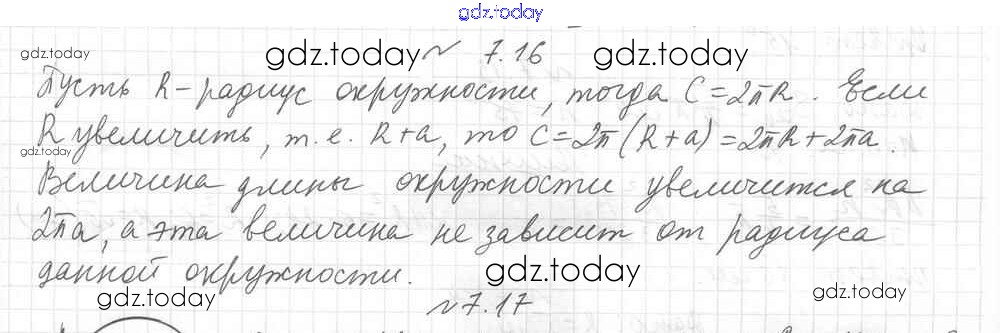 gdz.today
gdz.today gdz.today № 7.16 gdz.today gdz.today
Пусть R - радиус окружности, тогда C = 2πR. Если
R увеличить, т.е. R+a, то C = 2π(R+a) = 2πR + 2πa.
gdz.today gdz.today
Величина длины окружности увеличится на
2πa, а эта величина не зависит от радиуса
данной окружности. gdz.today
gdz.today № 7.17 gdz.today